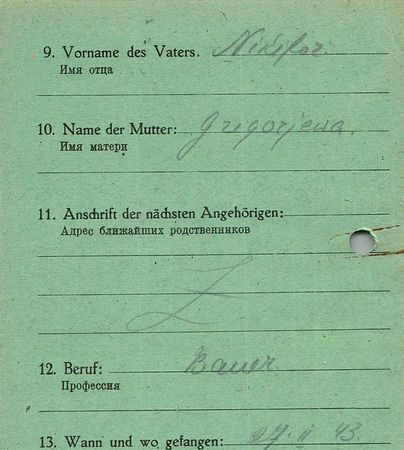 9. Vorname des Vaters. Nikifor.
Имя отца
10. Name der Mutter: Grigorjewa.
Имя матери
11. Anschrift der nächsten Angehörigen:
Адрес ближайших родственников
12. Beruf: Bauer
Профессия
13. Wann und wo gefangen: 27. II 43.